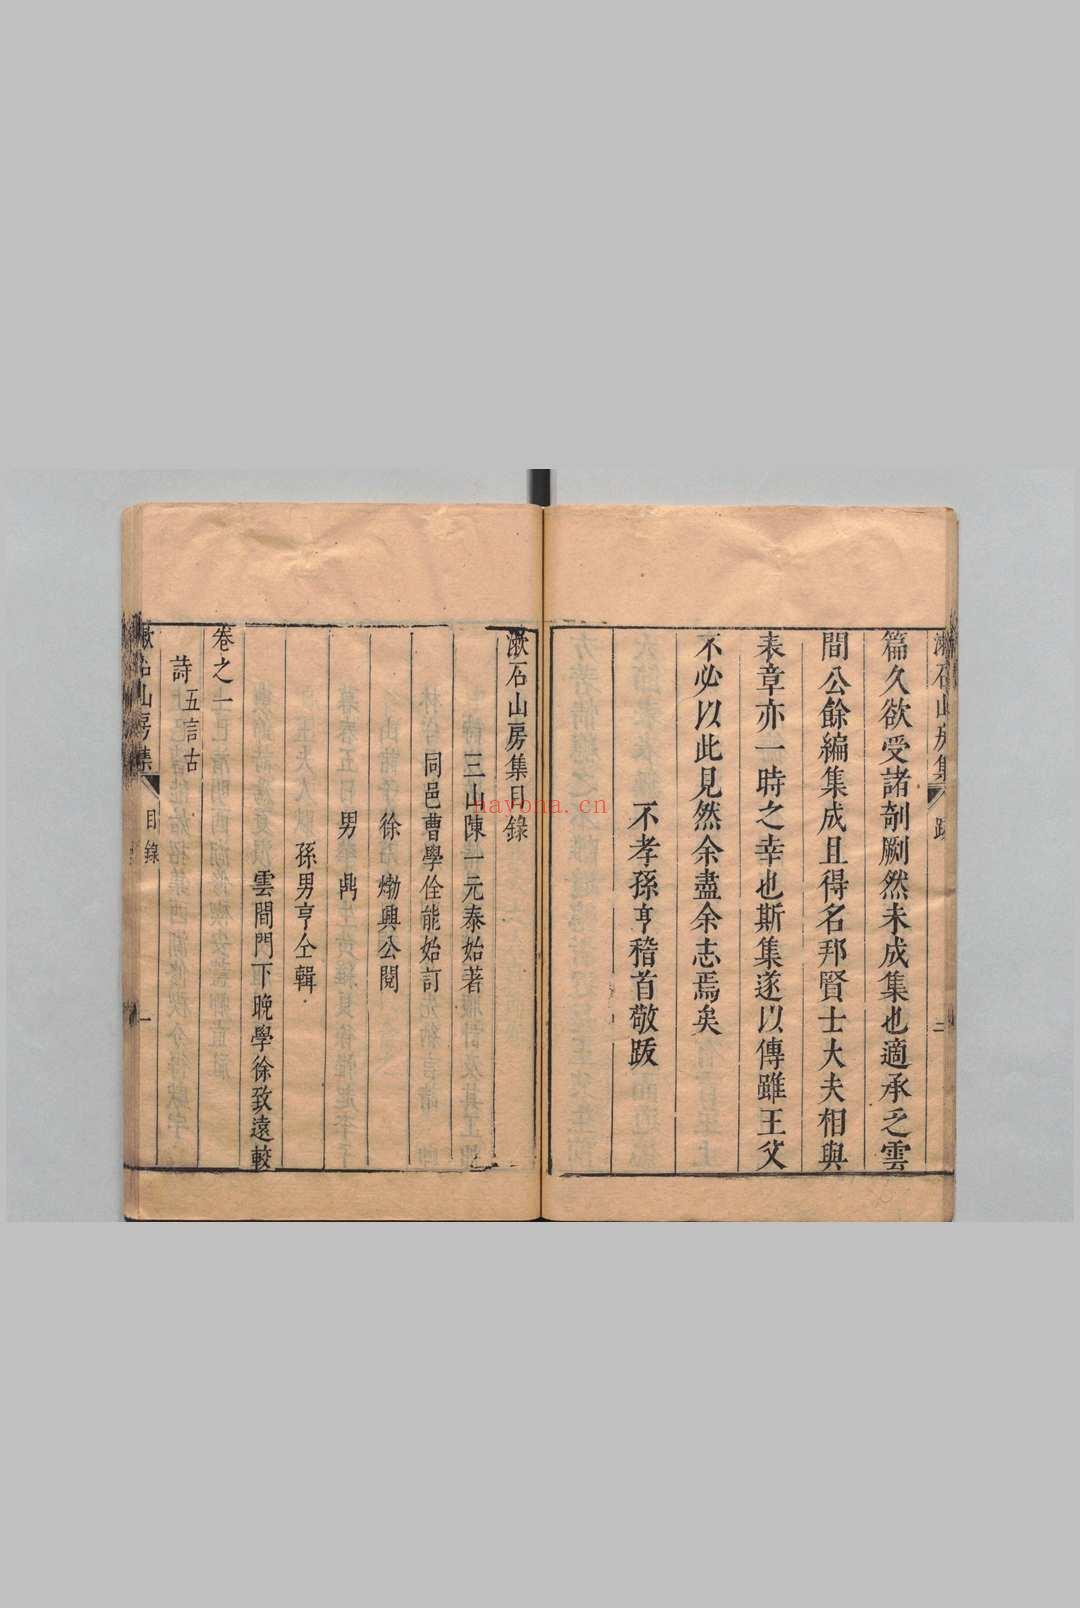 漱石山房集 跋 三
篇久欲受諸剞劂然未成集也適承乏雲
間公餘編集成且得名邦賢士大夫相與
表章亦一時之幸也斯集遂以傳雖王父
不必以此見然余盡余志焉矣
不孝孫亨稽首敬跋
漱石山房集目錄
三山陳一元泰始著
同邑曹學佺能始訂
徐𤊹興公閱
男 鼎
孫男亨仝輯
雲間門下晚學徐致遠較
卷之一
詩 五言古
漱石山房集 目錄 一
nayona.cn